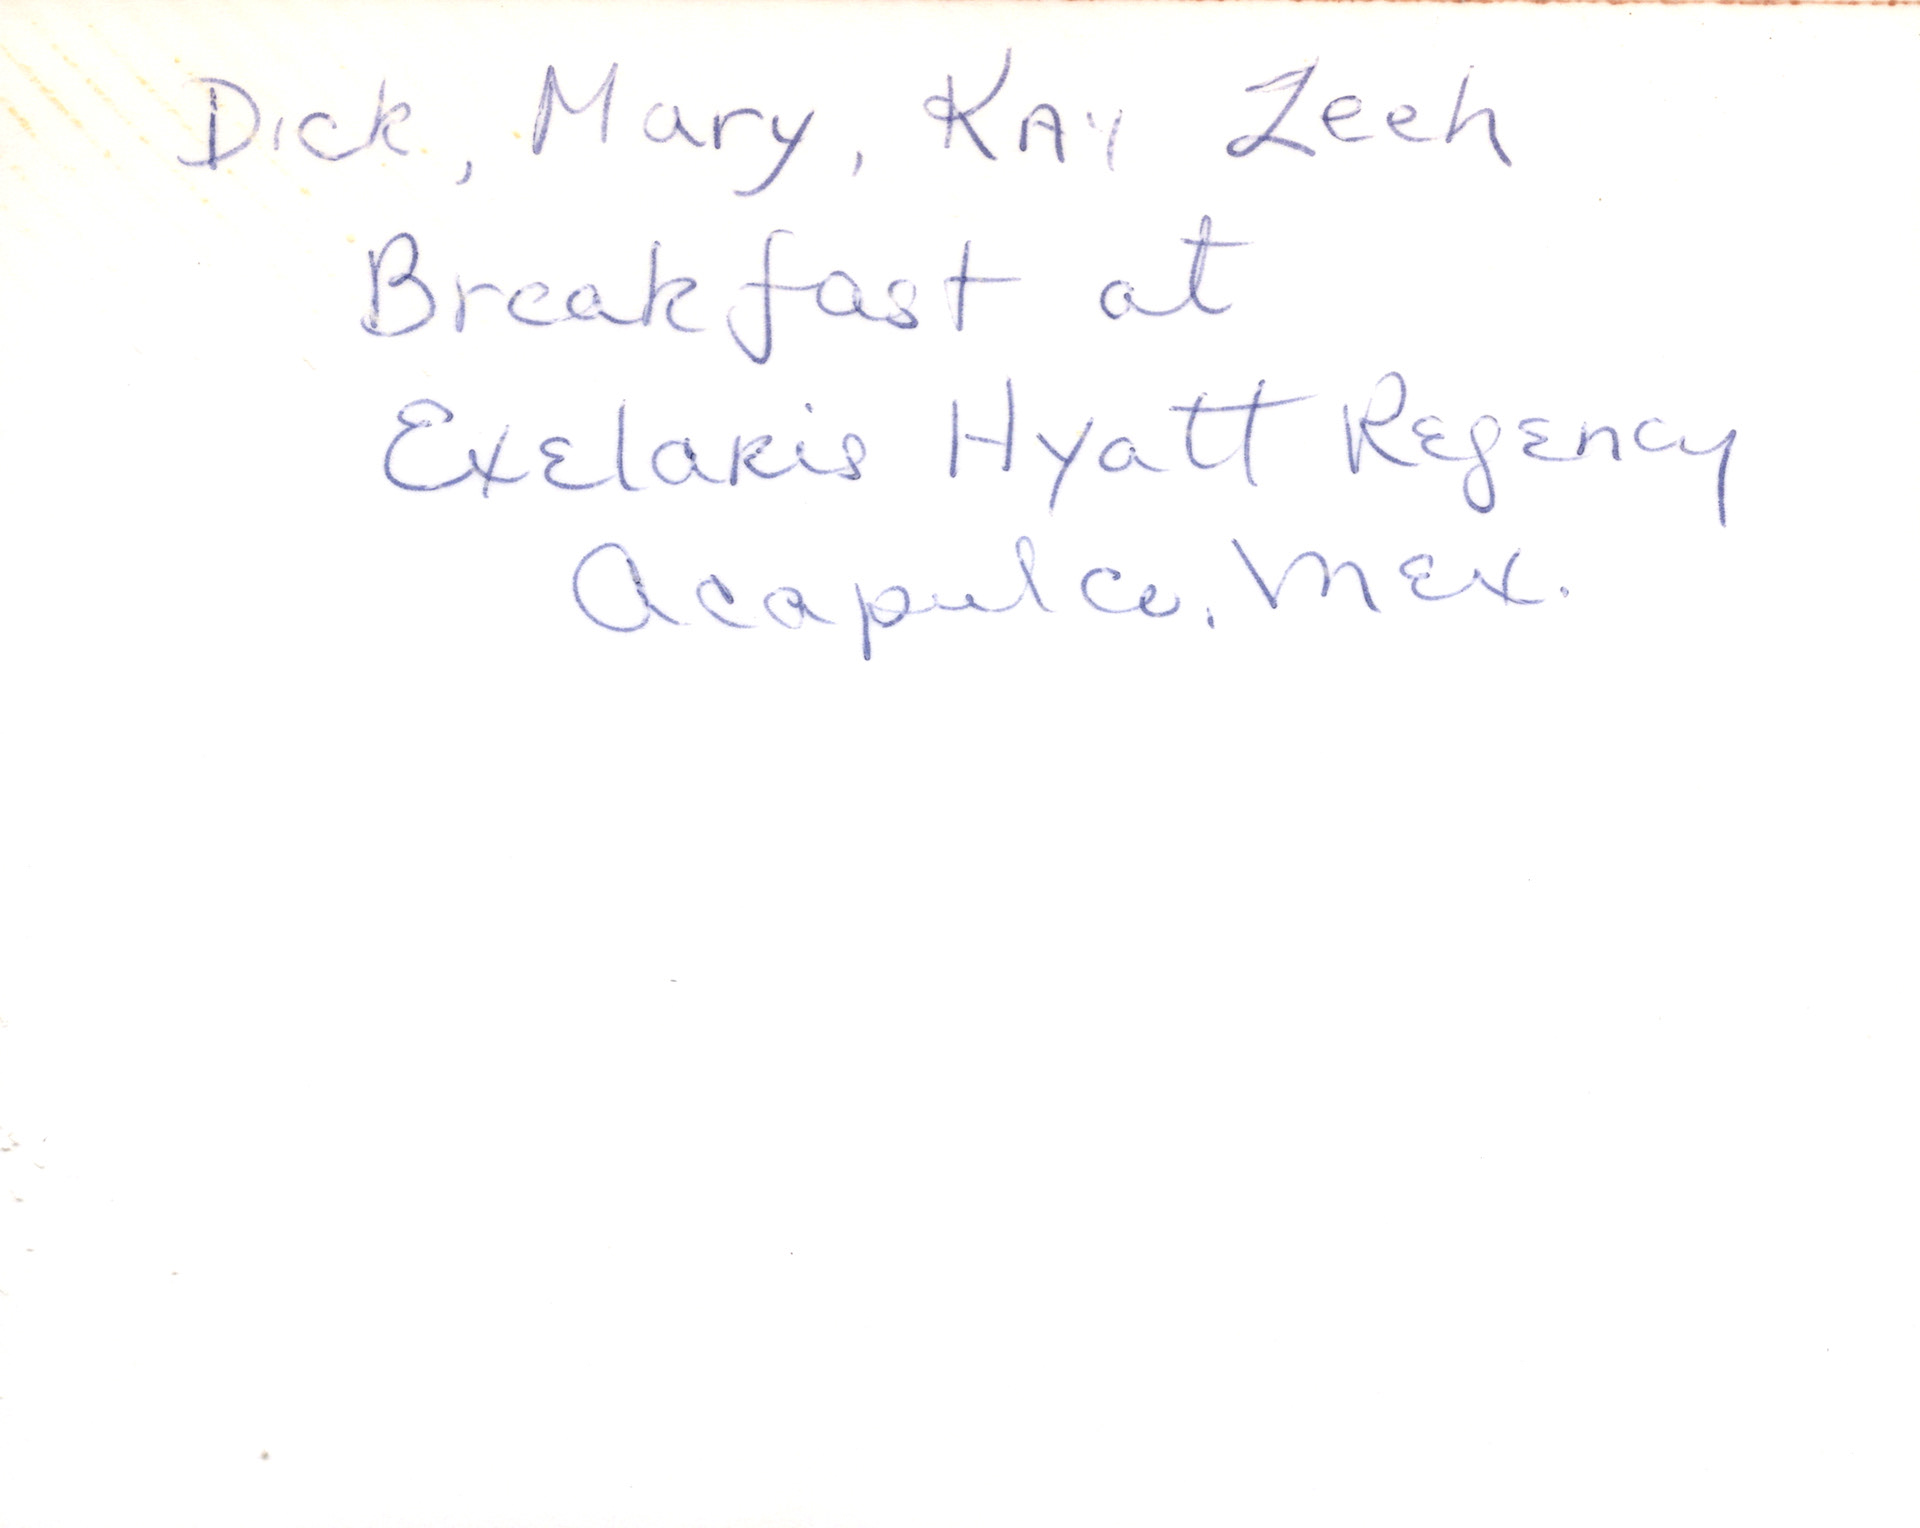 Dick, Mary, KAY Zech
Breakfast at
Exelaris Hyatt Regency
Acapulco, Mex.